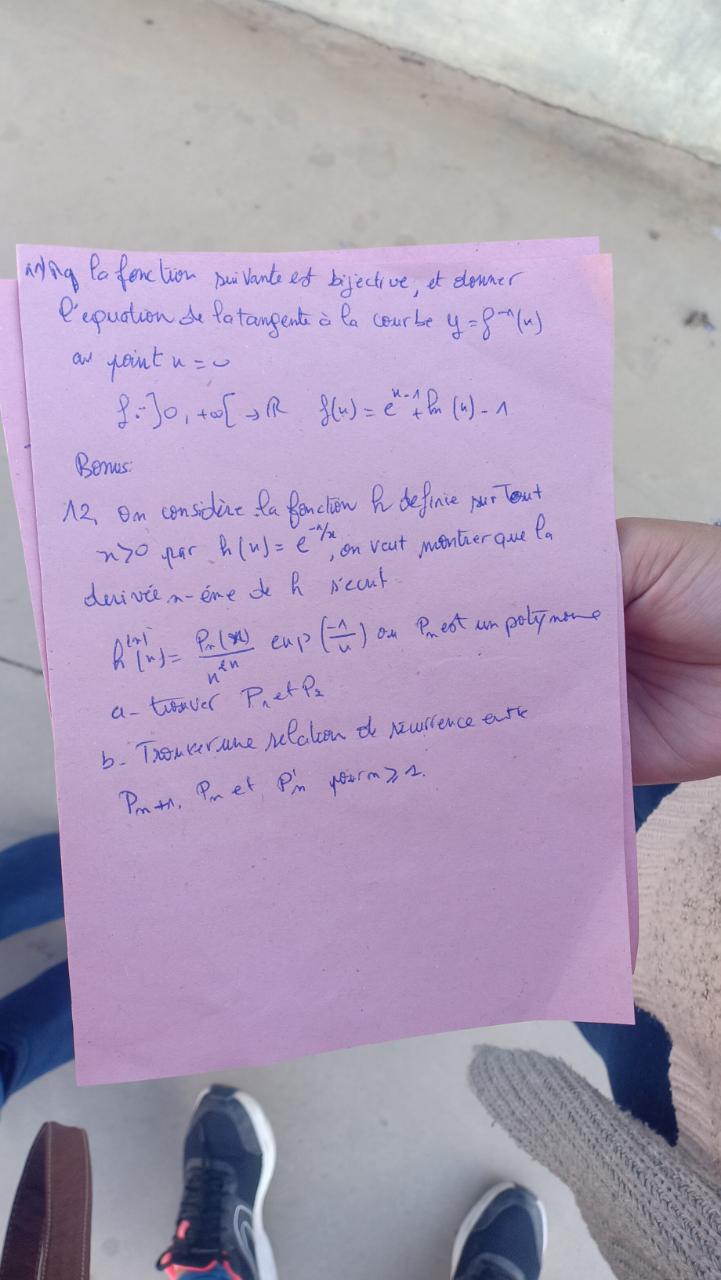 11) Mq la fonction suivante est bijective, et donner
l'equation de la tangente à la courbe y = f⁻¹(x)
au point x = 0
f : ]0, +∞[ → ℝ f(x) = e^{x-1} + ln(x) - 1
Bonus:
12, On considère la fonction h definie sur tout
x>0 par h(x) = e^{-1/x}, on veut montrer que la
derivée n-éme de h s'ecrit
h^{(n)}(x) = \frac{P_n(x)}{x^{2n}} exp(\frac{-1}{x}) ou P_n est un polynome
a - trouver P₁ et P₂
b - Trouver une relation de recurrence entre
P_{n+1}, P_n et P'_n pour n ≥ 1.